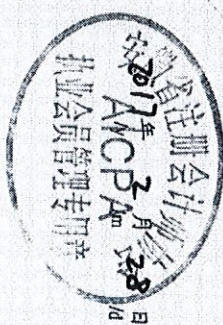 安徽省注册会计师协会
2017年2月28日
AHCPA
m
/d
执业会员管理专用章